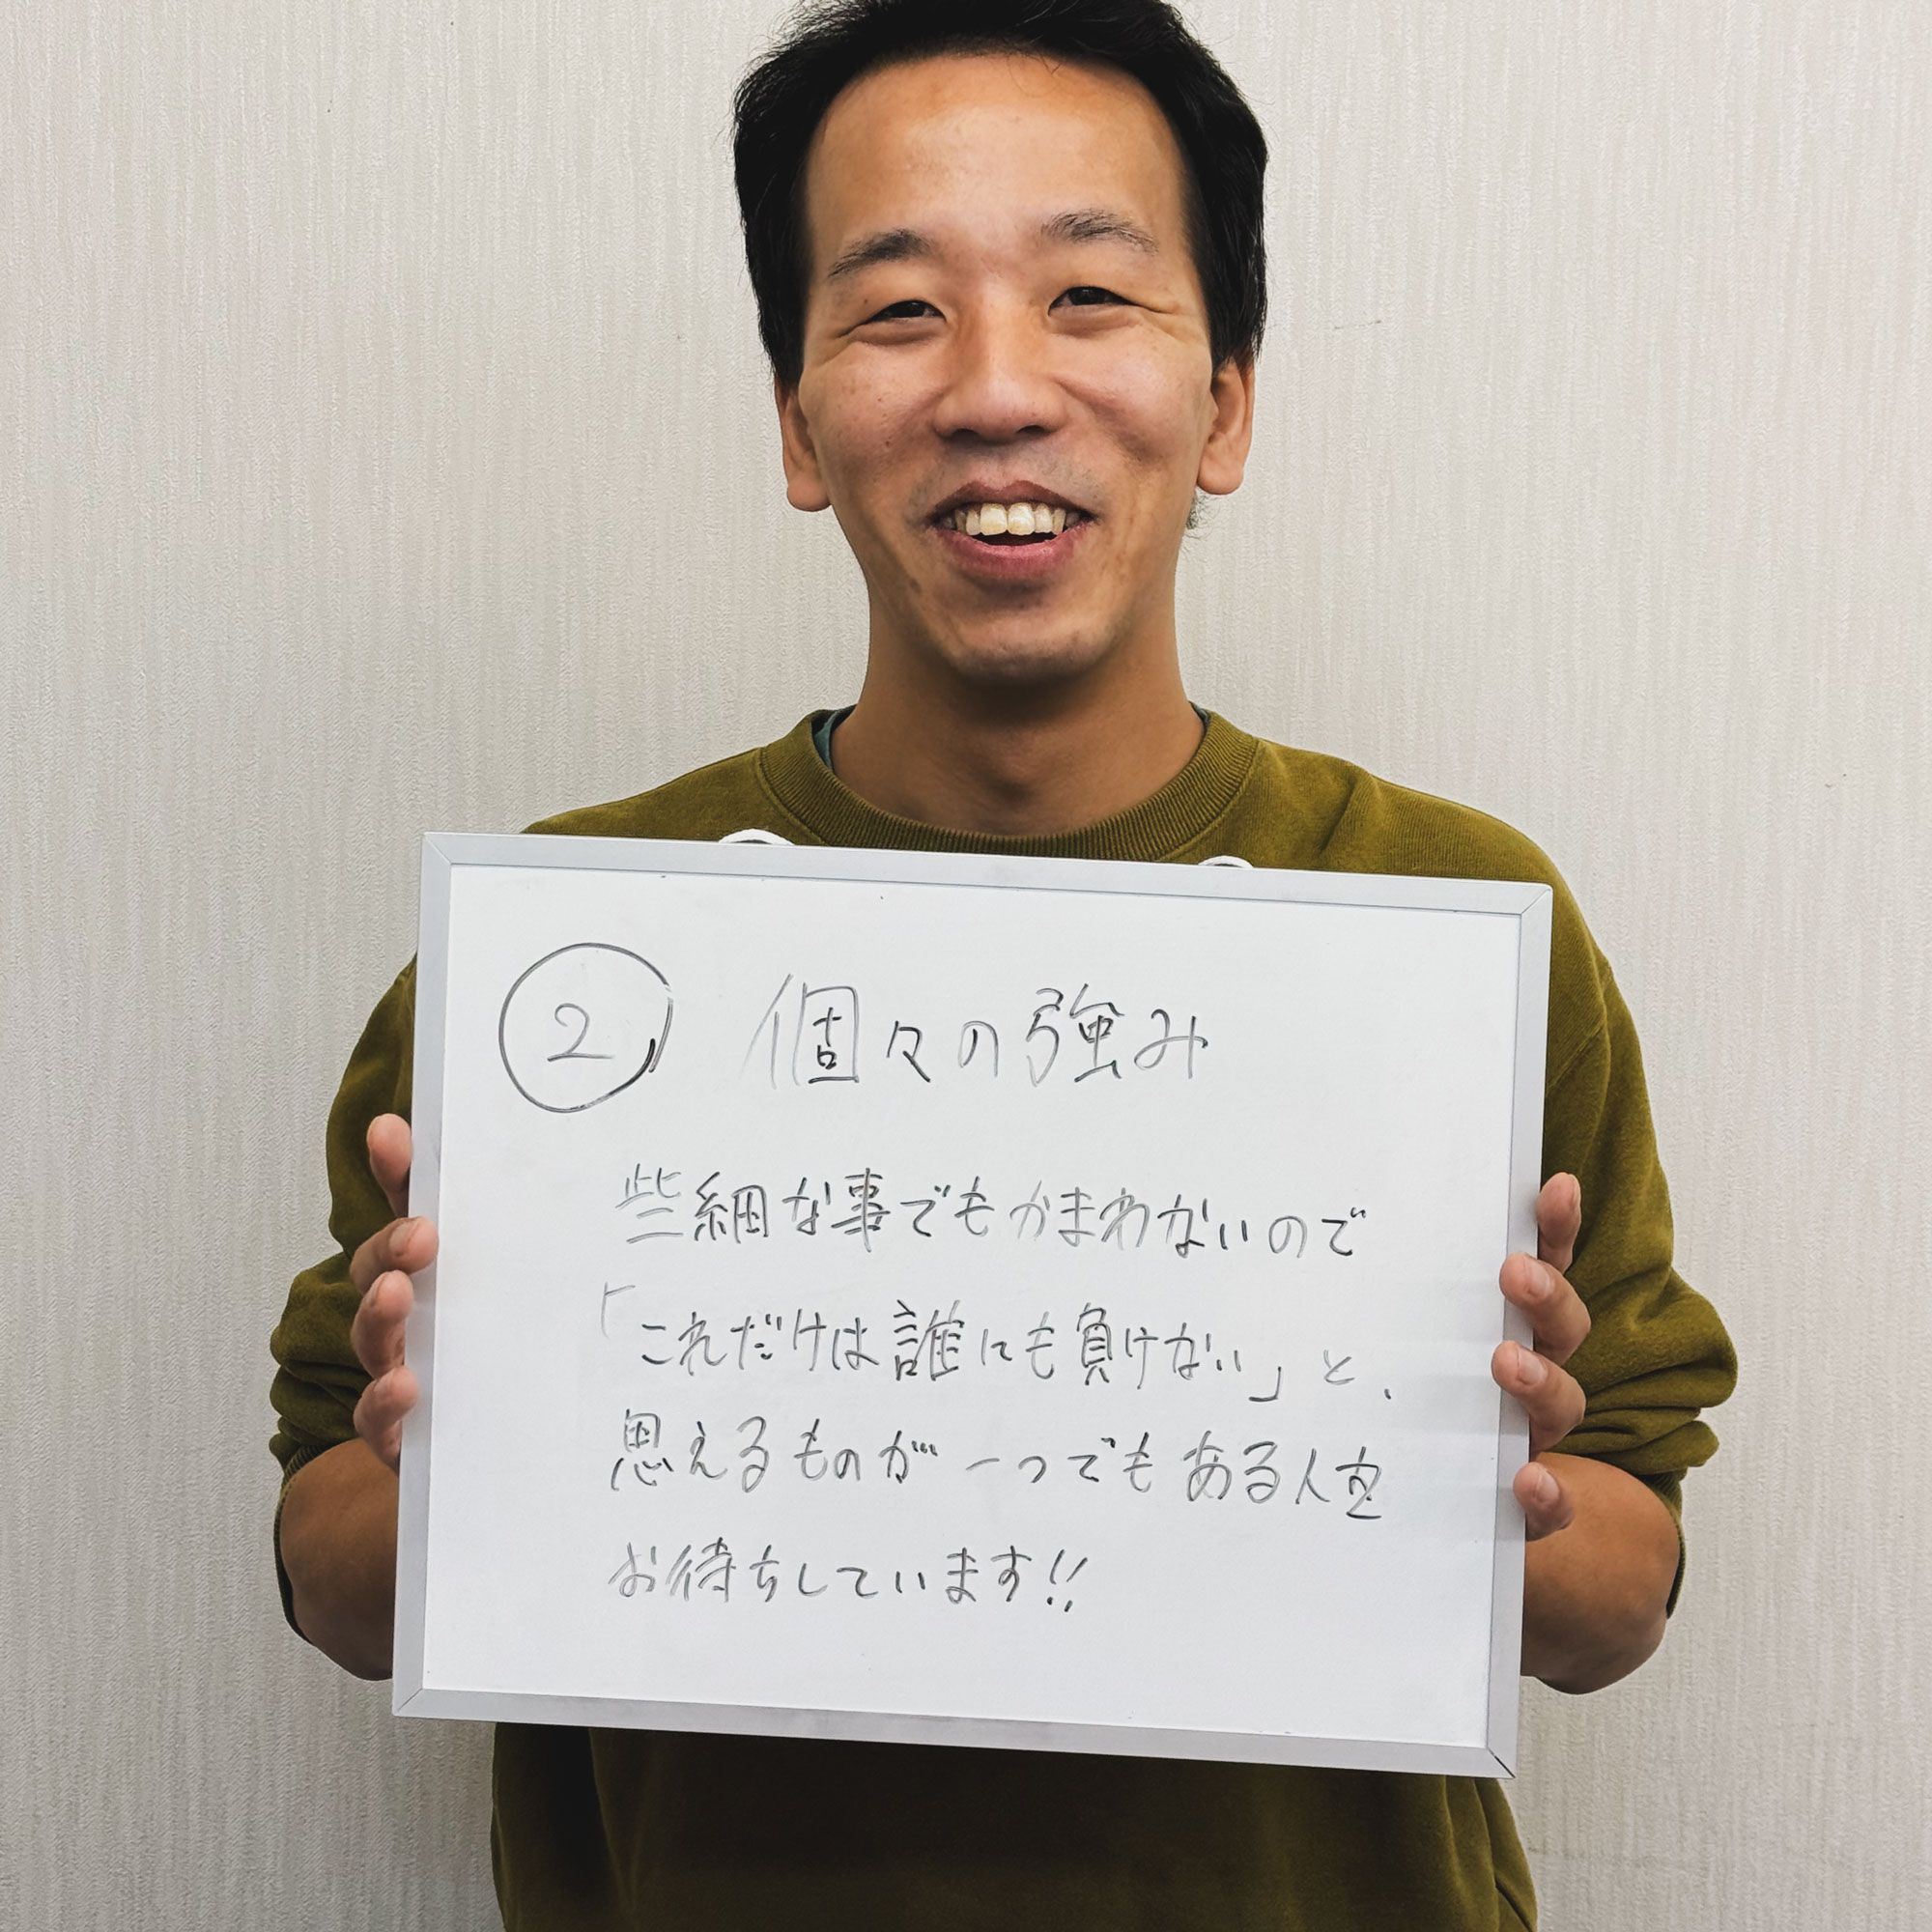 ② 個々の強み
些細な事でもかまわないので
「これだけは誰にも負けない」と、
思えるものが一つでもある人を
お待ちしています!!